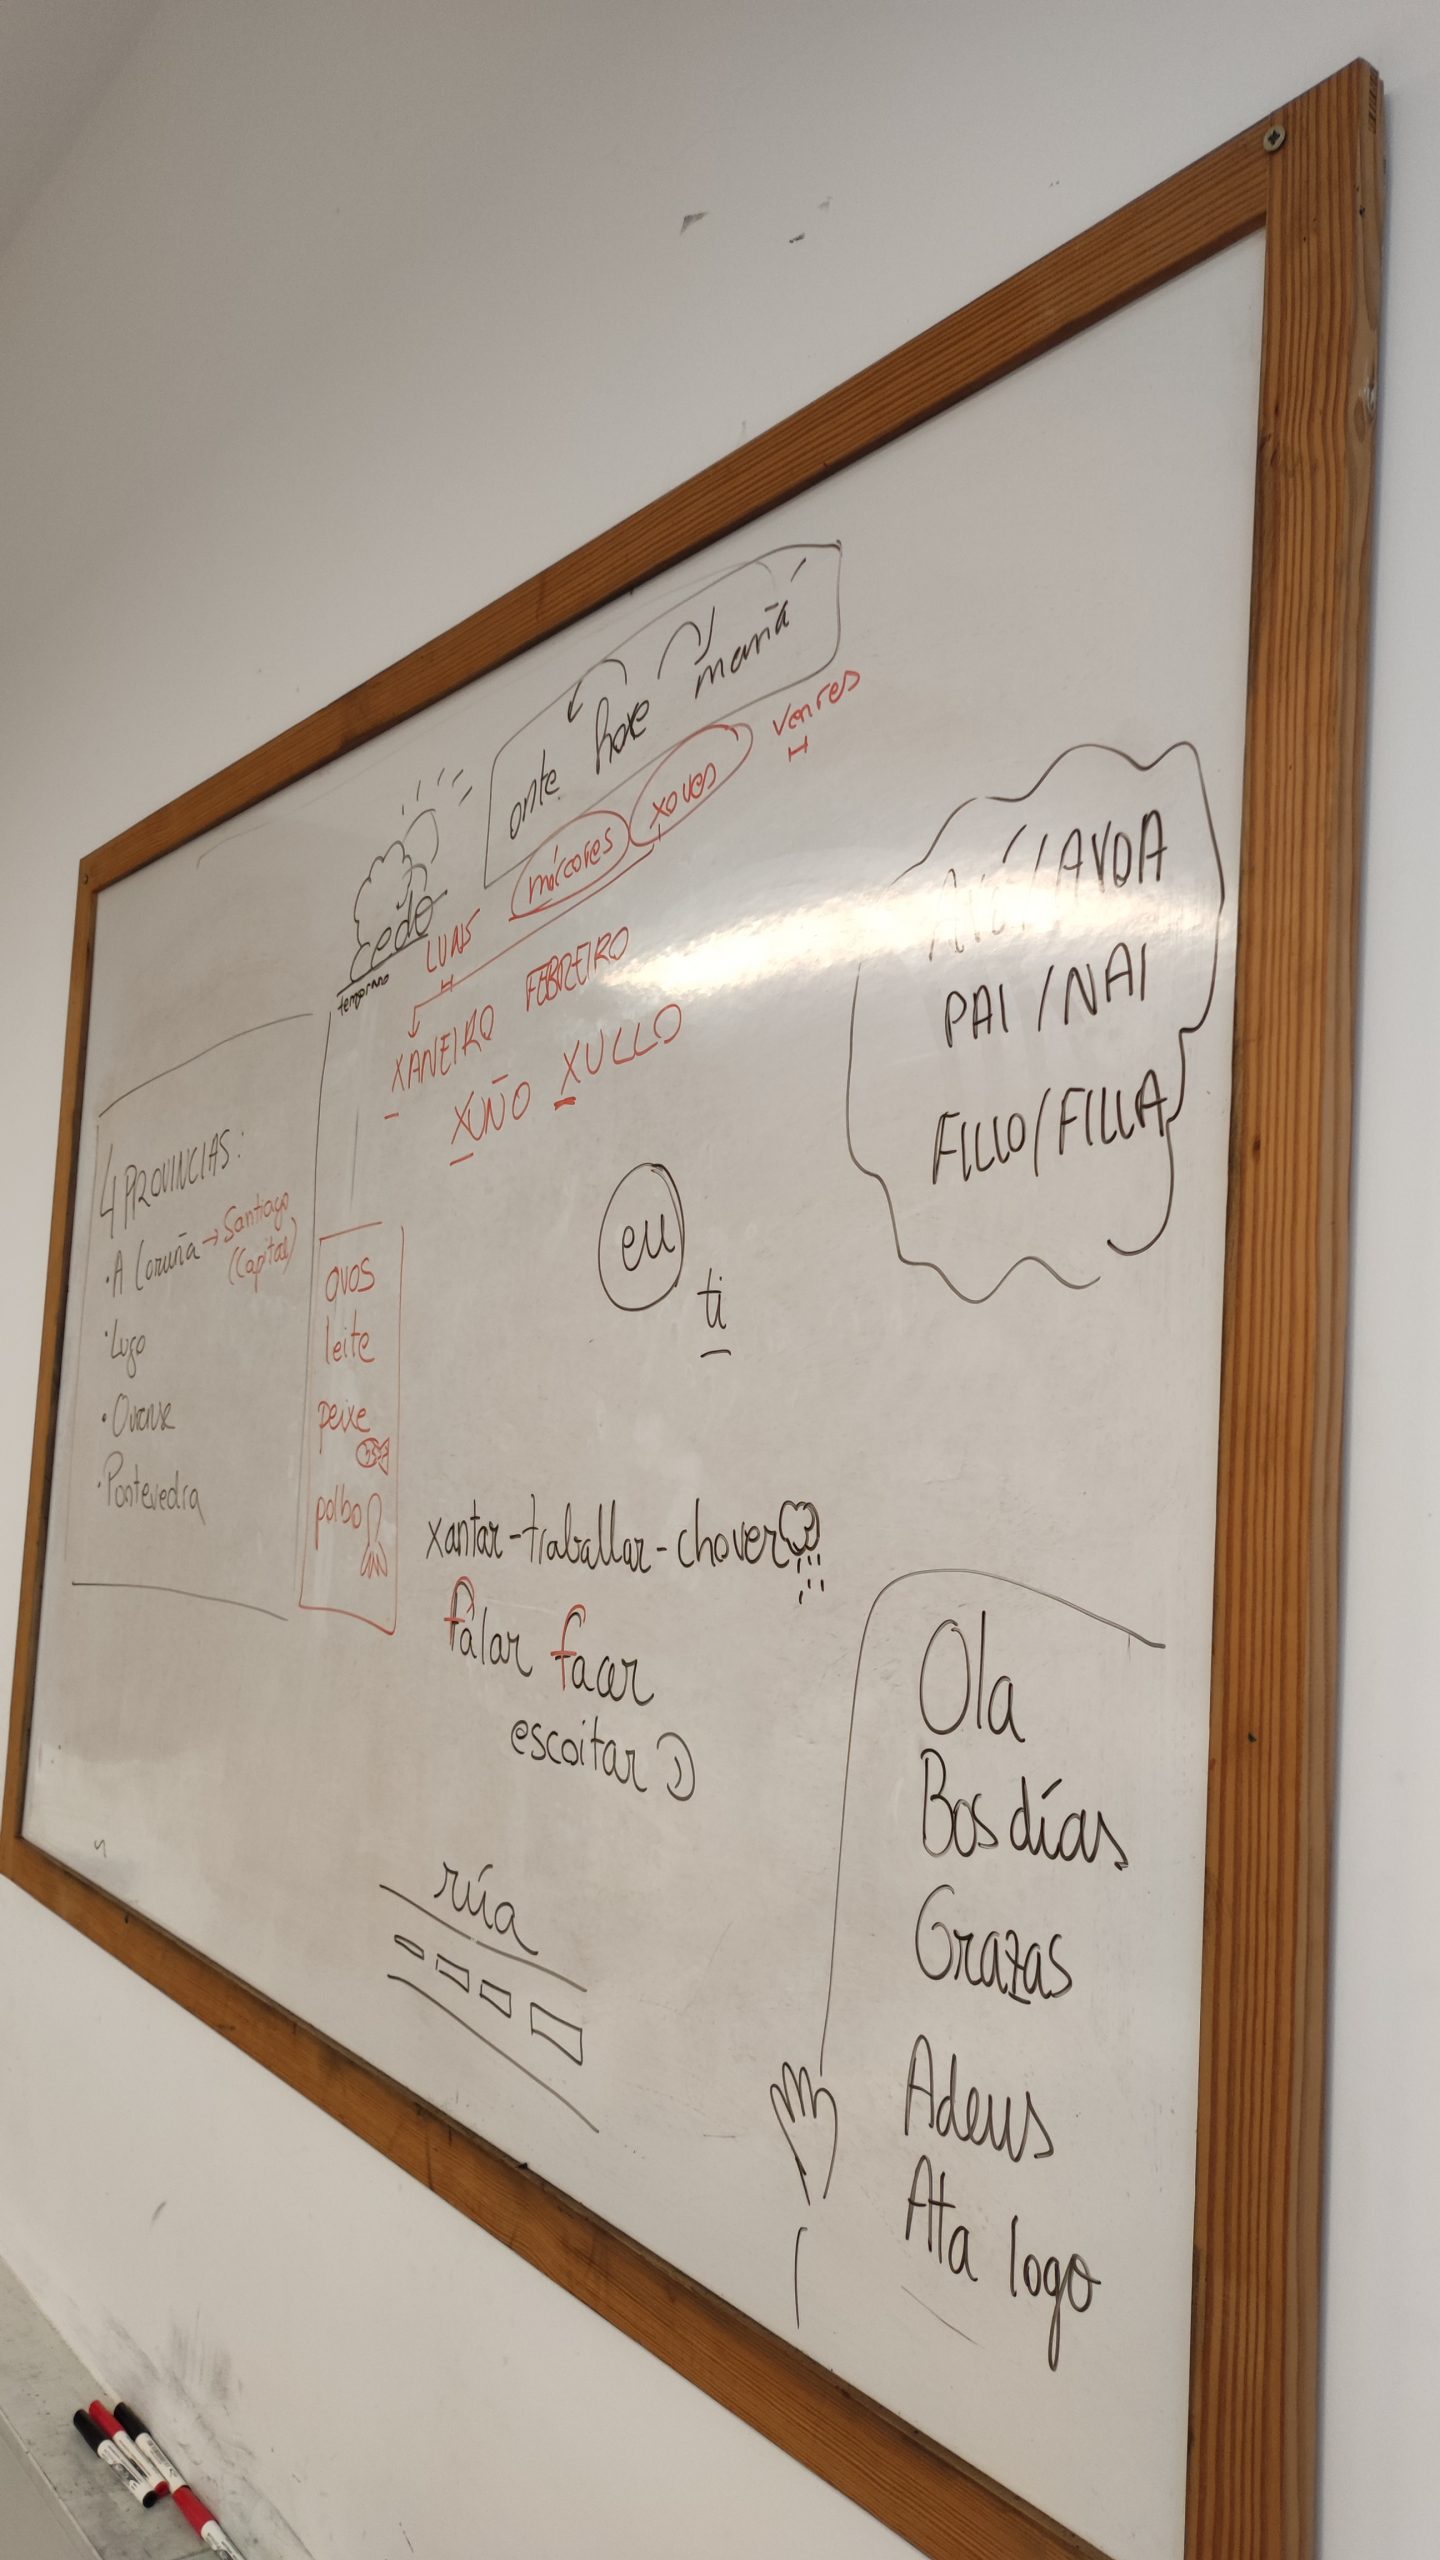 onte hoxe mañá
cedo
temprano
LUNS mércores xoves venres
XANEIRO FEBREIRO
XUÑO XULLO
4 PROVINCIAS:
·A Coruña → Santiago
(Capital)
·Lugo
·Ourense
·Pontevedra
ovos
leite
peixe
polbo
eu
ti
AVÓ/AVOA
PAI/NAI
FILLO/FILLA
xantar-traballar-chover
falar facer
escoitar
rúa
Ola
Bos días
Grazas
Adeus
Ata logo